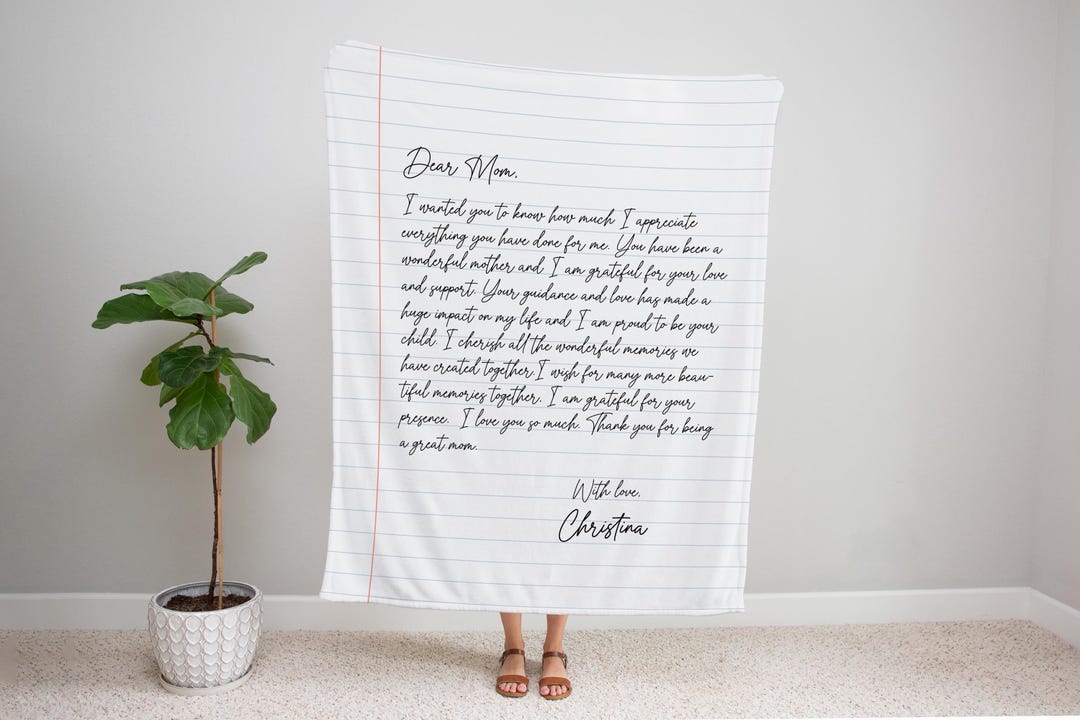 Dear Mom,
I wanted you to know how much I appreciate
everything you have done for me. You have been a
wonderful mother and I am grateful for your love
and support. Your guidance and love has made a
huge impact on my life and I am proud to be your
child. I cherish all the wonderful memories we
have created together. I wish for many more beau-
tiful memories together. I am grateful for your
presence. I love you so much. Thank you for being
a great mom.
With love,
Christina